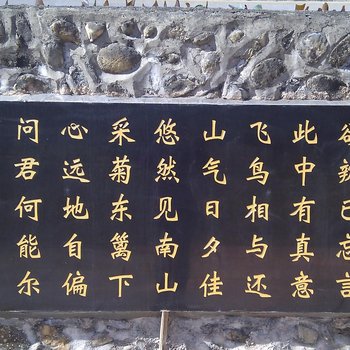 问君何能尔
心远地自偏
采菊东篱下
悠然见南山
山气日夕佳
飞鸟相与还
此中有真意
欲辩已忘言